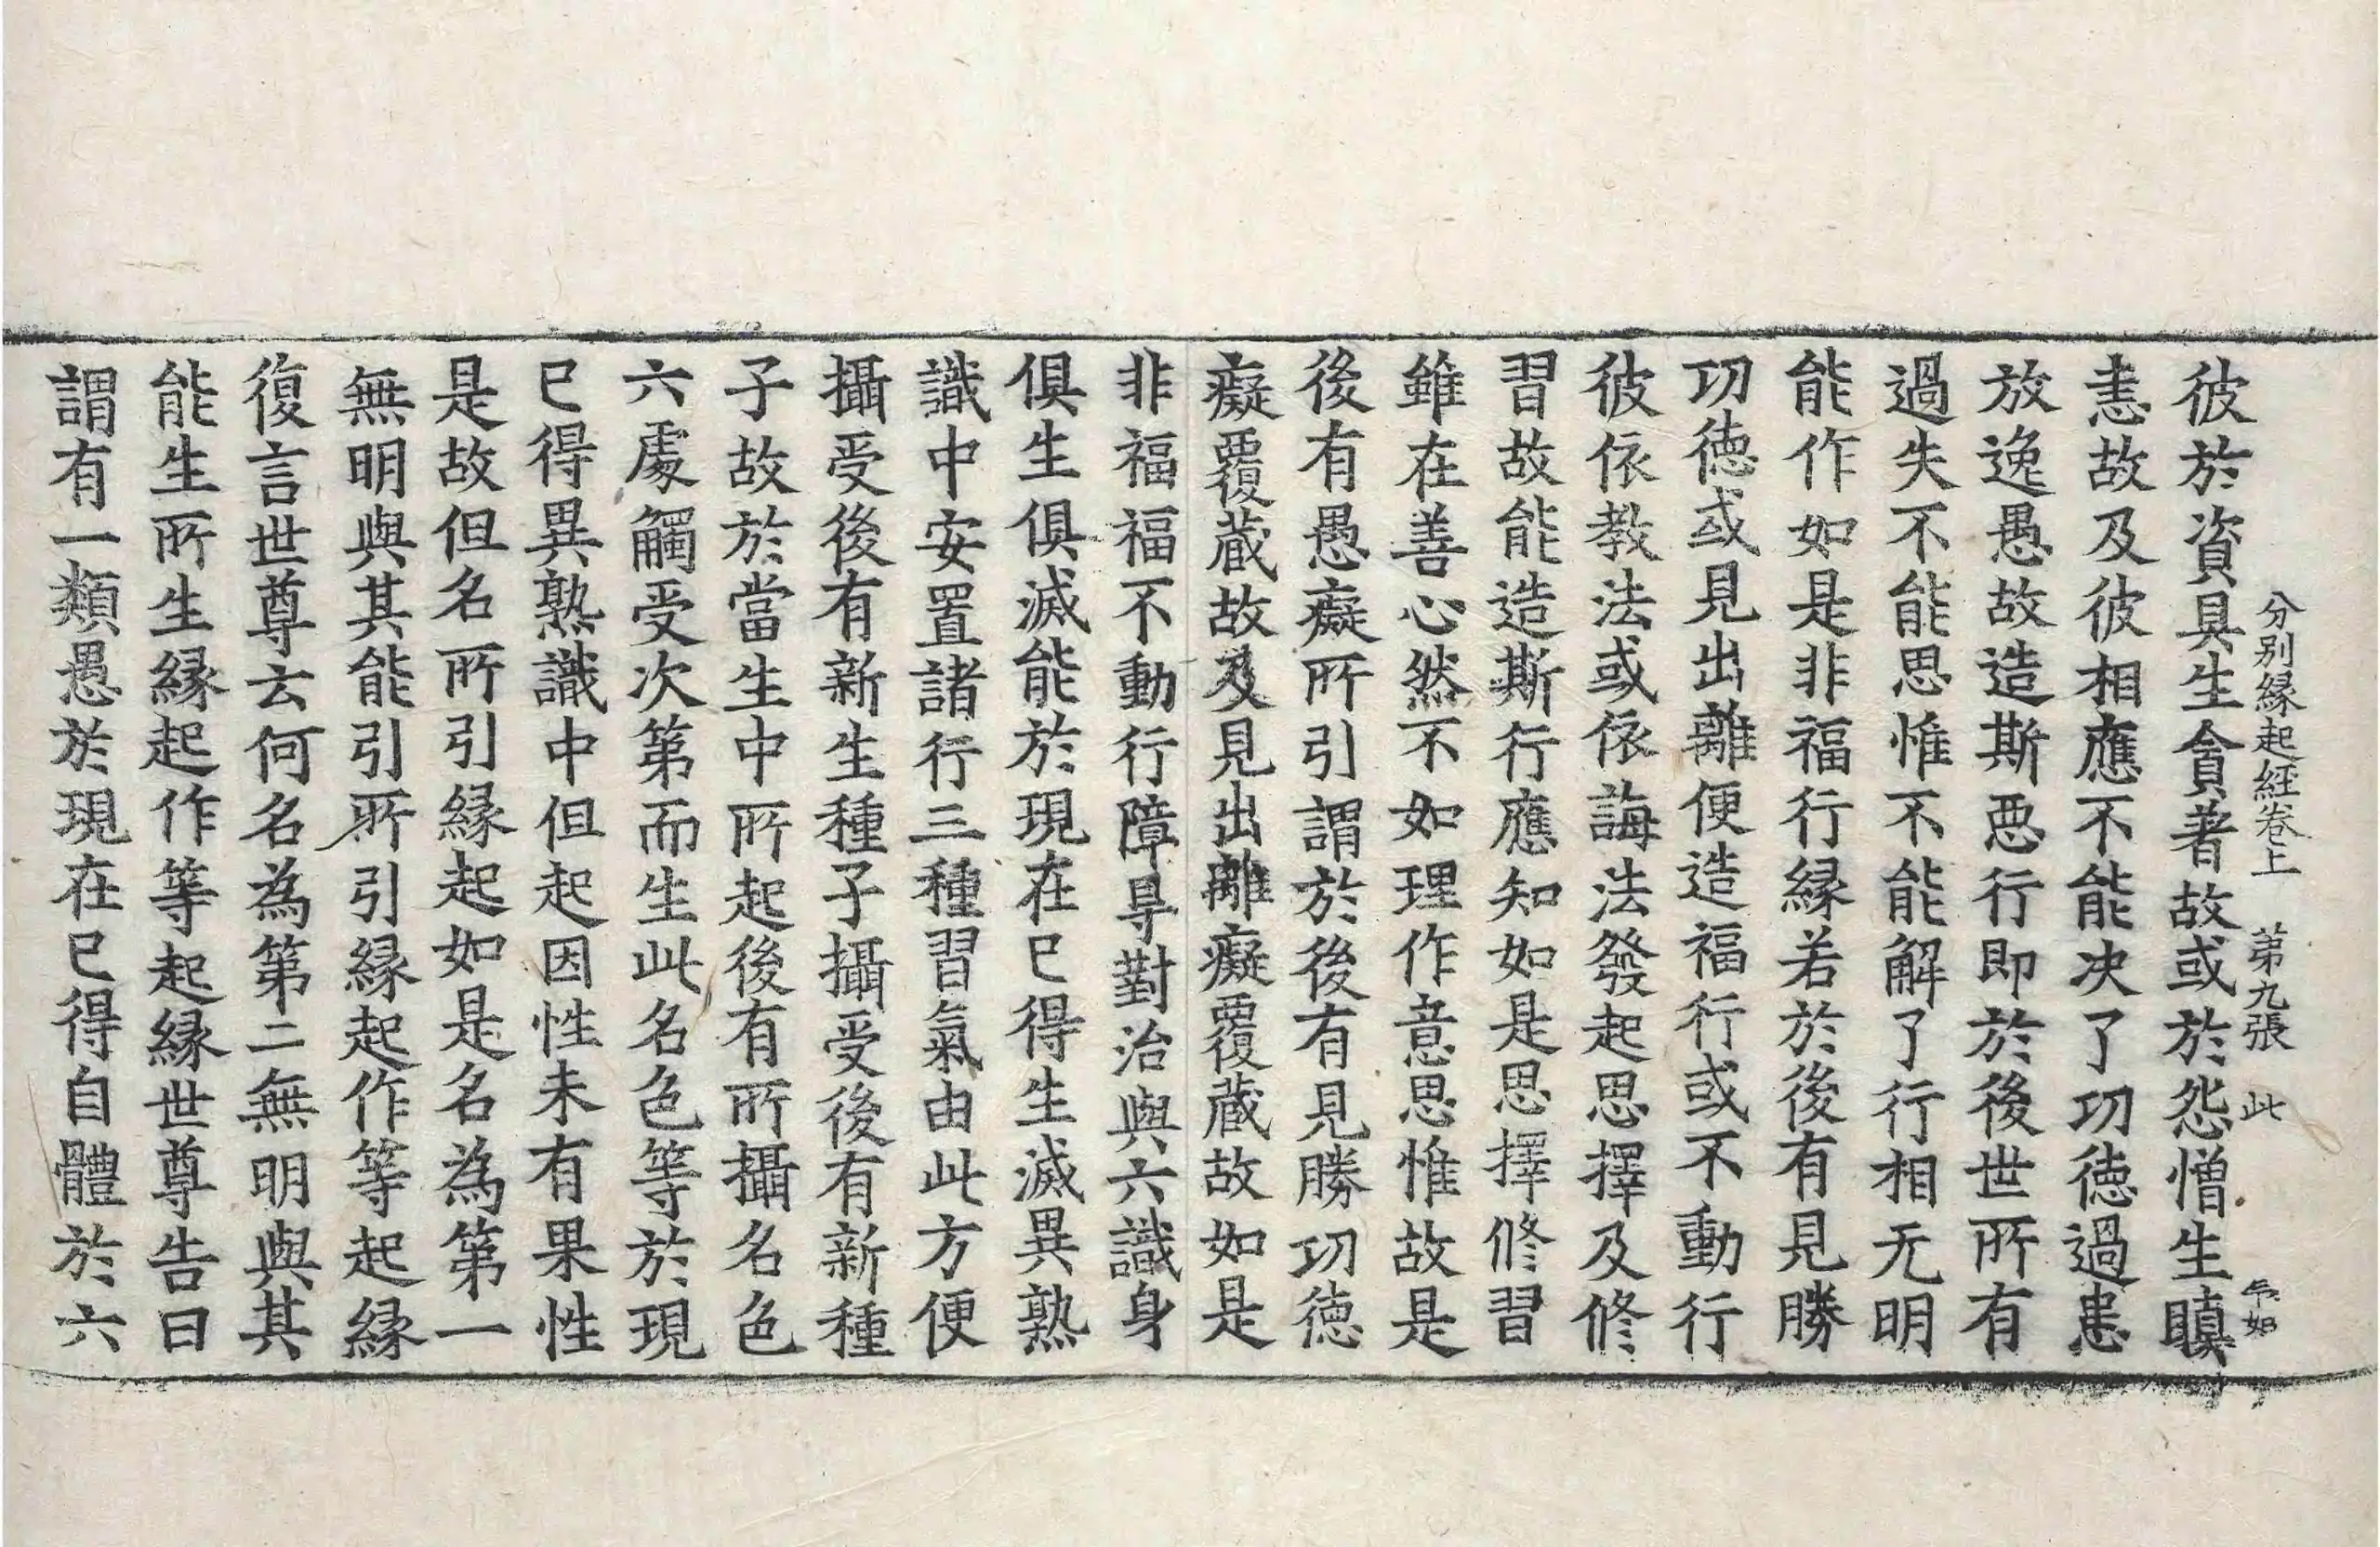 分別縁起經卷上　第九張　此
彼於資具生貪著故或於怨憎生瞋
恚故及彼相應不能决了功徳過患
放逸愚故造斯恶行即於後世所有
過失不能思惟不能解了行相无明
能作如是非福行縁若於後有見勝
功徳或見出離便造福行或不動行
彼依教法或依誨法發起思擇及修
習故能造斯行應知如是思擇修習
雖在善心然不如理作意思惟故是
後有愚癡所引謂於後有見勝功徳
癡覆蔵故及見出離癡覆蔵故如是
非福福不動行障㝵對治與六識身
俱生俱滅能於現在已得生滅異熟
識中安置諸行三種習氣由此方便
攝受後有新生種子攝受後有新種
子故於當生中所起後有所攝名色
六處觸受次第而生此名色等於現
已得異熟識中但起因性未有果性
是故但名所引縁起如是名為第一
無明與其能引所引縁起作等起縁
復言世尊云何名為第二無明與其
能生所生縁起作等起縁世尊告曰
謂有一類愚於現在已得自體於六